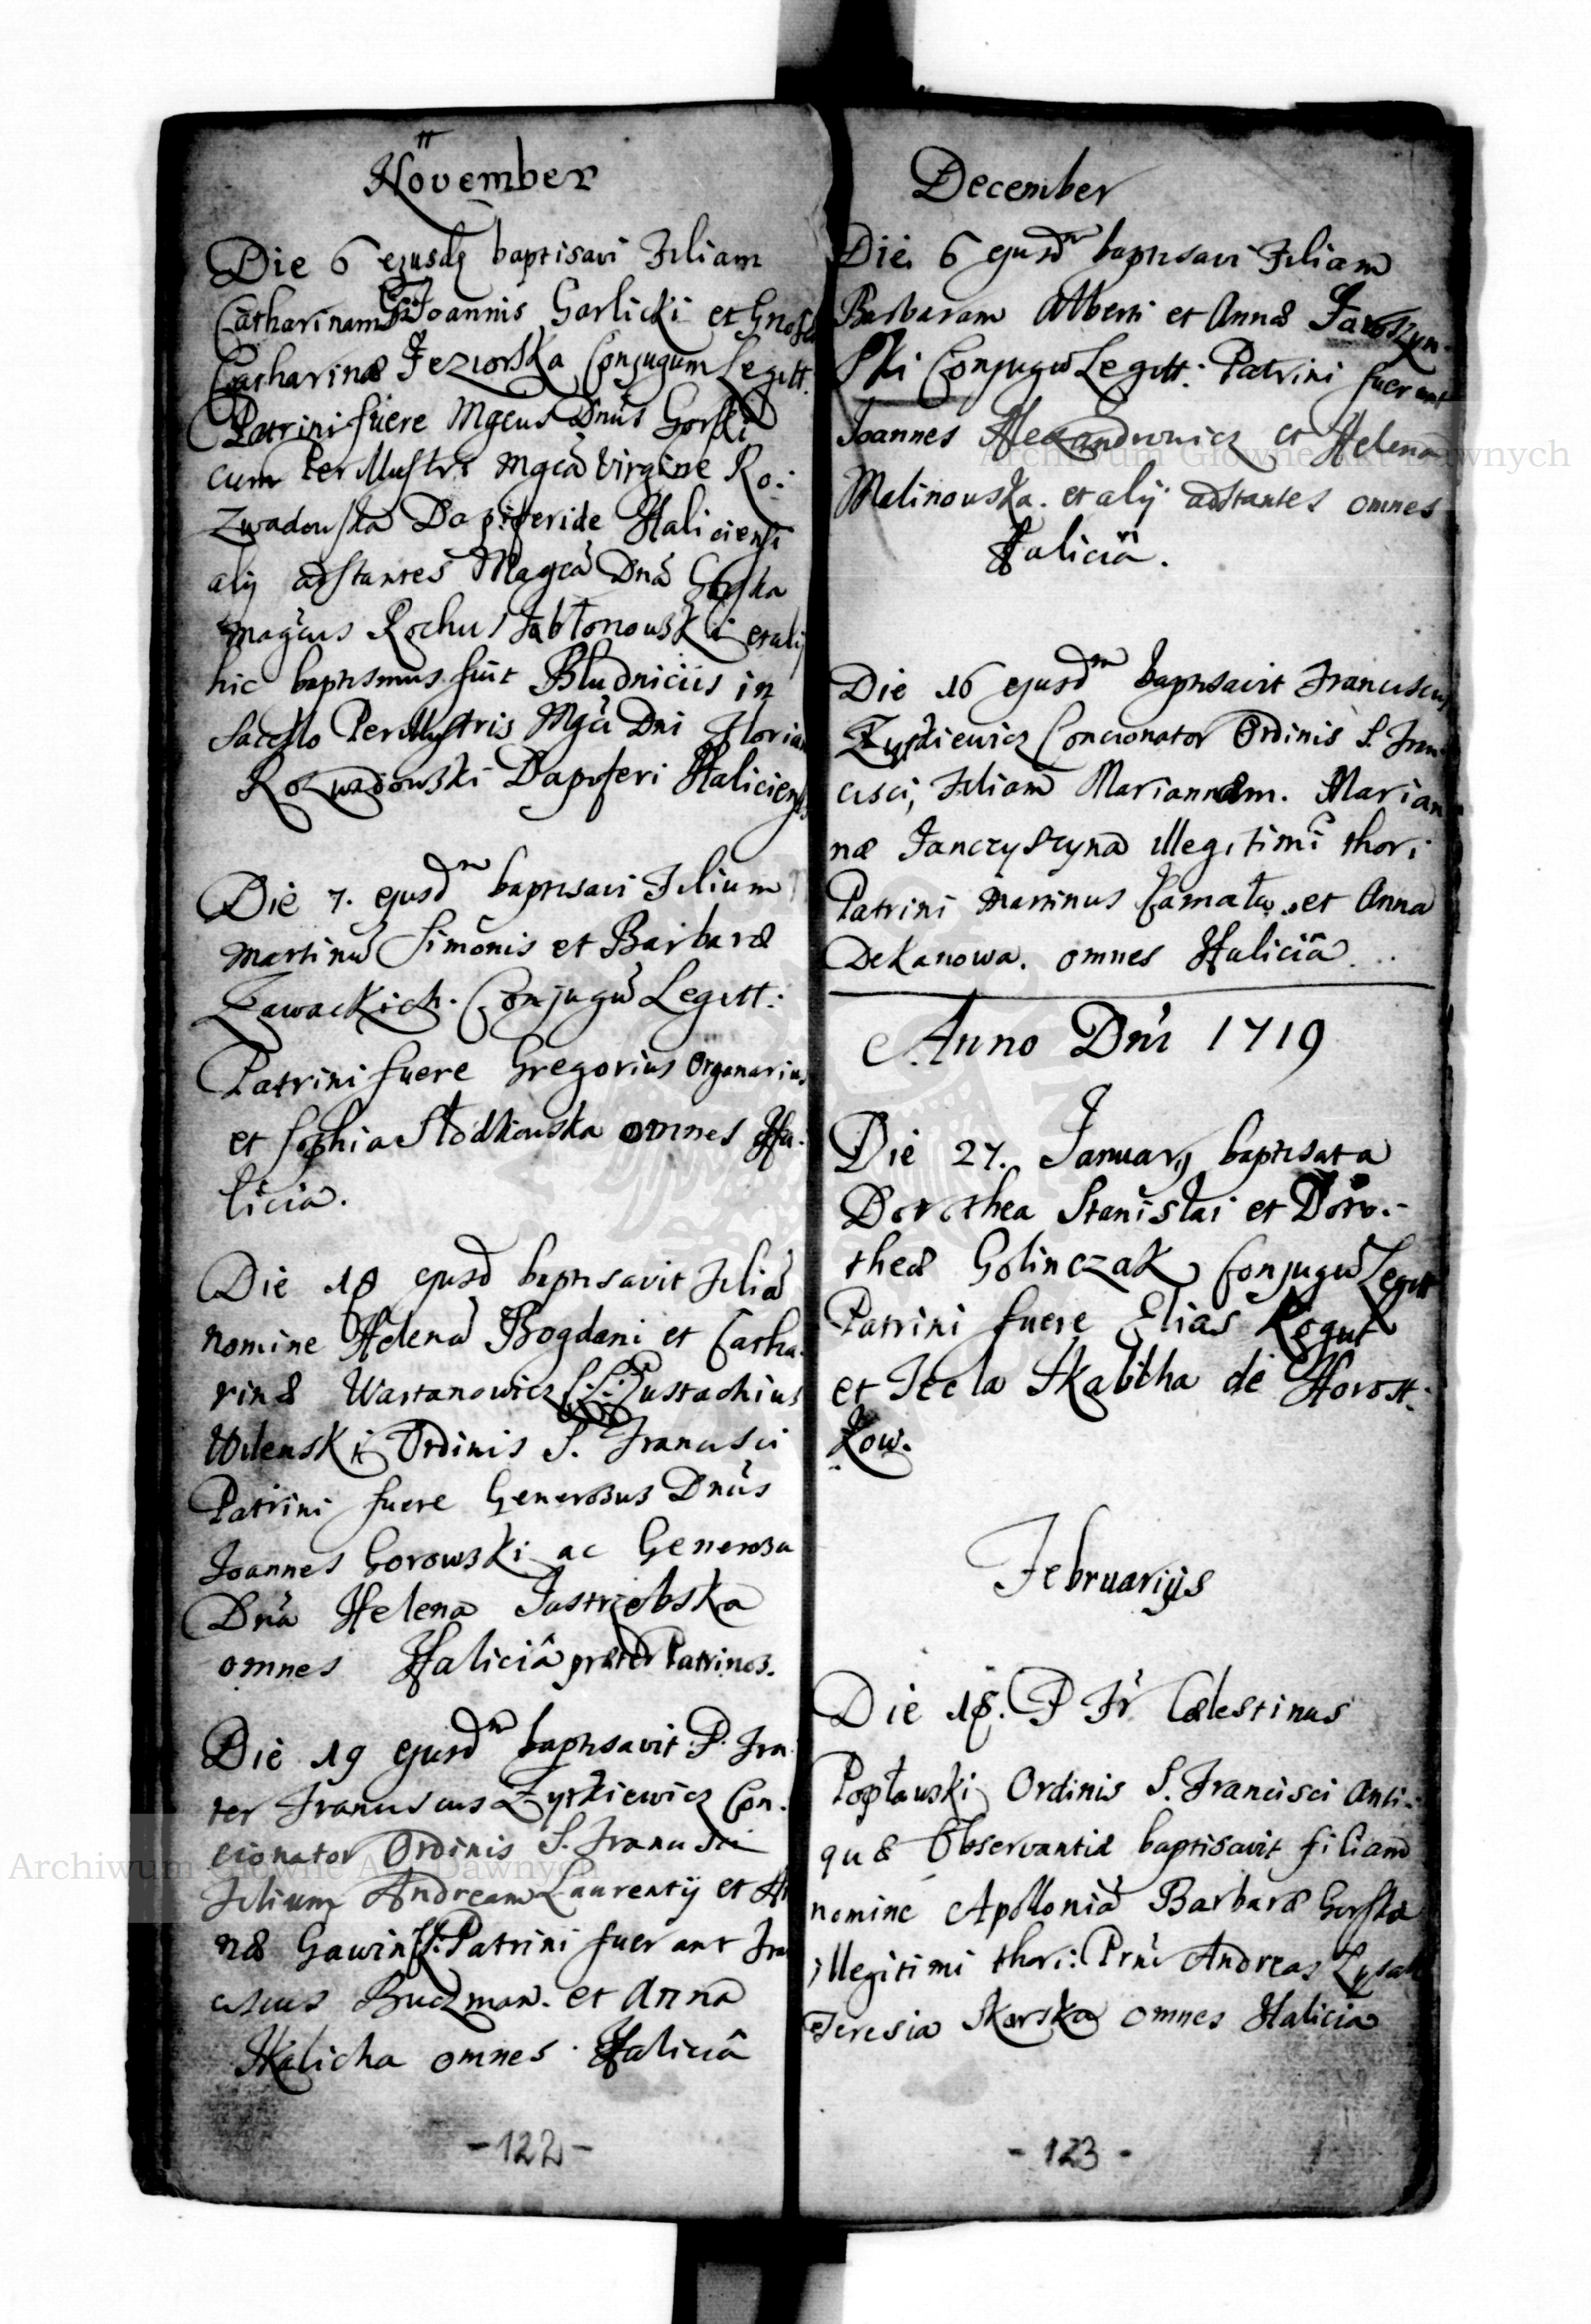 November
Die 6 ejusdq baptisavi Filiam
Catharinam GD Joannis Garlicki et Gnosæ
Catharinæ Jeziorska Conjugum Legitt.
Patrini fuere Mgcus Dnus Gorski
cum Perillustri Mgca Virgine Ro:
zwadowska Dapiferide Haliciensi
alij adstantes Magca Dna Gorska
magcus Rochus Jabłonowski et alij
hic baptismus fuit Bludniciis in
Sacello Perillustris Mgci Dni Florian
Rozwadowski Dapiferi Haliciensis
Die 7. ejusdm baptisavi Filium
Martinu Simonis et Barbaræ
Zawackich. Conjugu Legitt:
Patrini fuere Gregorius Organarius
et Sophia Słodkowska omnes Ha:
licia.
Die 18 ejusd baptisavit Filia
nomine Helena Bogdani et Catha.
rinæ Wartanowicz C: L: P: Eustachius
Wilenski Ordinis S. Francisci
Patrini fuere Generosus Dnus
Joannes Gorowski ac Generosa
Dna Helena Jastrzębska
omnes Haliciâ præter Patrinos.
Die 19 ejusdm baptisavit P. Fra
ter Franciscus Zyrkiewicz Con.
cionator Ordinis S. Francisci
Filium Andream Laurentij et An
næ Gawin Patrini fuerant Fra
ciscus Buczman. et Anna
Skalicha omnes Haliciâ
-122-
December
Die 6 ejusdm baptisavi Filiam
Barbaram Alberti et Annæ Jaroszyn-
ski Conjugu Legitt: Patrini fuerant
Joannes Alexandrowicz et Helena
Malinouska. et alij adstantes omnes
Haliciâ.
Die 16 ejusdm baptisavit Franciscus
Zyrkiewicz Concionator Ordinis S. Fran
cisci, Filiam Mariannam. Marian
næ Janczyszyna illegitimi thori
Patrini Martinus et Anna
Dekanowa. omnes Haliciâ...
Anno Dni 1719
Die 27. Januarij baptisata
Dorothea Stanisłai et Doro-
theæ Golinczak Conjugu Legitt
Patrini fuere Elias Kogut
et Tecla Skabitha de Horost:
kow.
Februarijs
Die 18. P Fr Cælestinus
Popławski Ordinis S. Francisci Anti:
quæ Observantiæ baptisavit filiam
nomine Apollonia Barbaræ Gorska
illegitimi thori: Prni Andreas Łysak
Teresia Skarska omnes Halicia
- 123 -
Archiwum Główne Akt Dawnych
Archiwum Główne Akt Dawnych